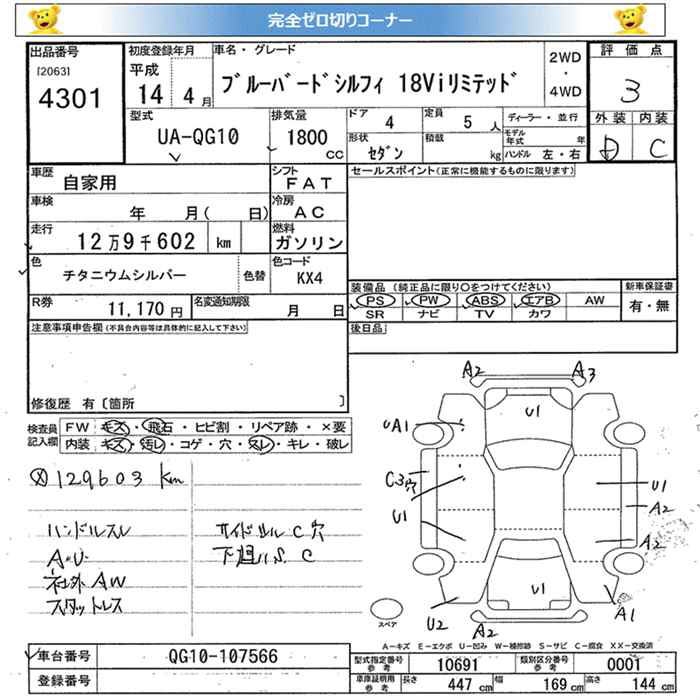 完全ゼロ切りコーナー
出品番号
[2063]
4301
初度登録年月
平成
14 4月
車名・グレード
ブルーバードシルフィ 18Viリミテッド
2WD
・
4WD
評価点
3
外装 内装
D C
型式
UA-QG10
排気量
1800
cc
ドア
4
定員
5 人
ディーラー・並行
モデル年式 年
形状
セダン
積載
kg
ハンドル 左・右
車歴
自家用
シフト
FAT
セールスポイント(正常に機能するものに限ります)
車検
年 月( 日)
冷房
AC
走行
12万9千602 km
燃料
ガソリン
色
チタニウムシルバー
色替
色コード
KX4
装備品 (純正品に限り○をつけてください)
PS PW ABS エアB AW
SR ナビ TV カワ
新車保証書
有・無
R券
11,170円
名変通知期限
月 日
後日品
注意事項申告欄(不具合内容等は具体的に記入して下さい)
修復歴 有〔箇所 〕
検査員記入欄
FW キズ・飛石・ヒビ割・リペア跡・×要
内装 キズ・汚レ・コゲ・穴・スレ・キレ・破レ
129603 km
ハンドルスレ
A・U
社外AW
スタットレス
サイドシル C 穴
下廻りS. C
A2 A3
U1
UA1
C3穴
U1
U1
A2
A2
U1
U2
A2
A1
スペア
A-キズ E-エクボ U-凹み W-補修跡 S-サビ C-腐食 XX-交換済
車台番号
QG10-107566
登録番号
型式指定番号 参考
10691
類別区分番号 参考
0001
車庫証明用 参考
長さ 447 cm 幅 169 cm 高さ 144 cm